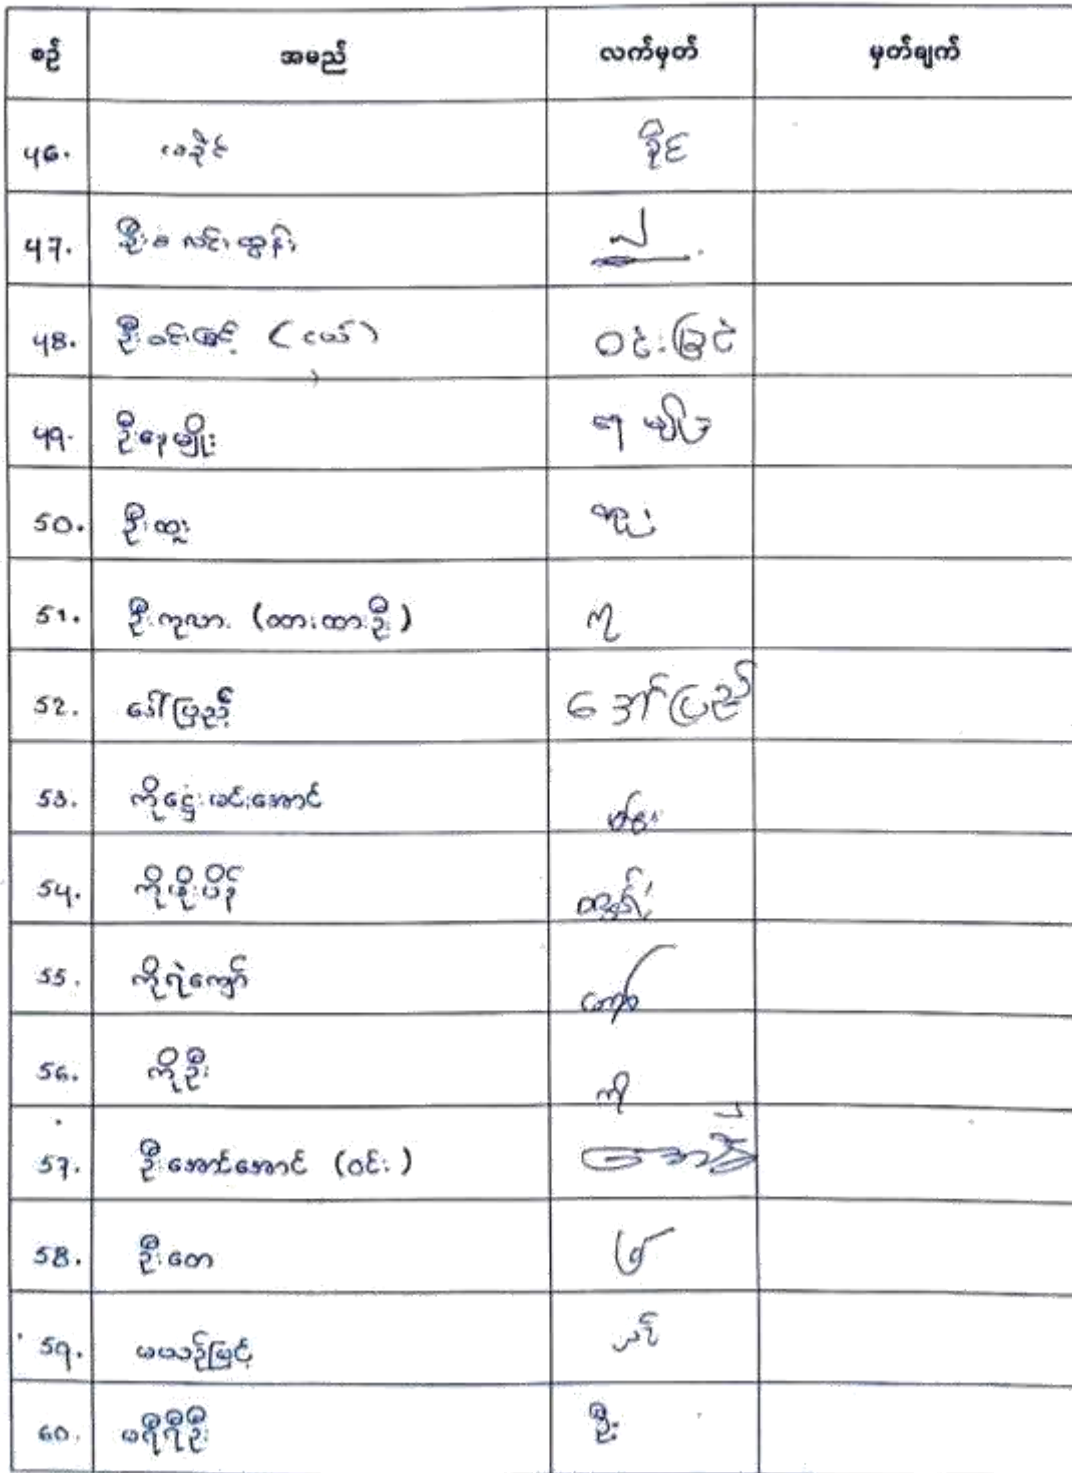 စဉ် အမည် လက်မှတ် မှတ်ချက်
46. မခိုင် ခိုင်
47. ဦး လင်းထွန်း
48. ဦးဝင်းမြင့် (ငယ်) ဝင်းမြင့်
49. ဦးနေမျိုး နေမျိုး
50. ဦးထူး ထူး
51. ဦးကုလား (ထားထားဦး) ကု
52. ဒေါ်ပြည့် အော်ပြည့်
53. ကိုဌေးမင်းအောင်
54. ကိုဖိုးပိန်
55. ကိုရဲကျော် ကျော်
56. ကိုဦး ကို
57. ဦးအောင်အောင် (ဝင်း)
58. ဦးတေ
59. မယဉ်မြင့်
60. မရီရီဦး ဦး